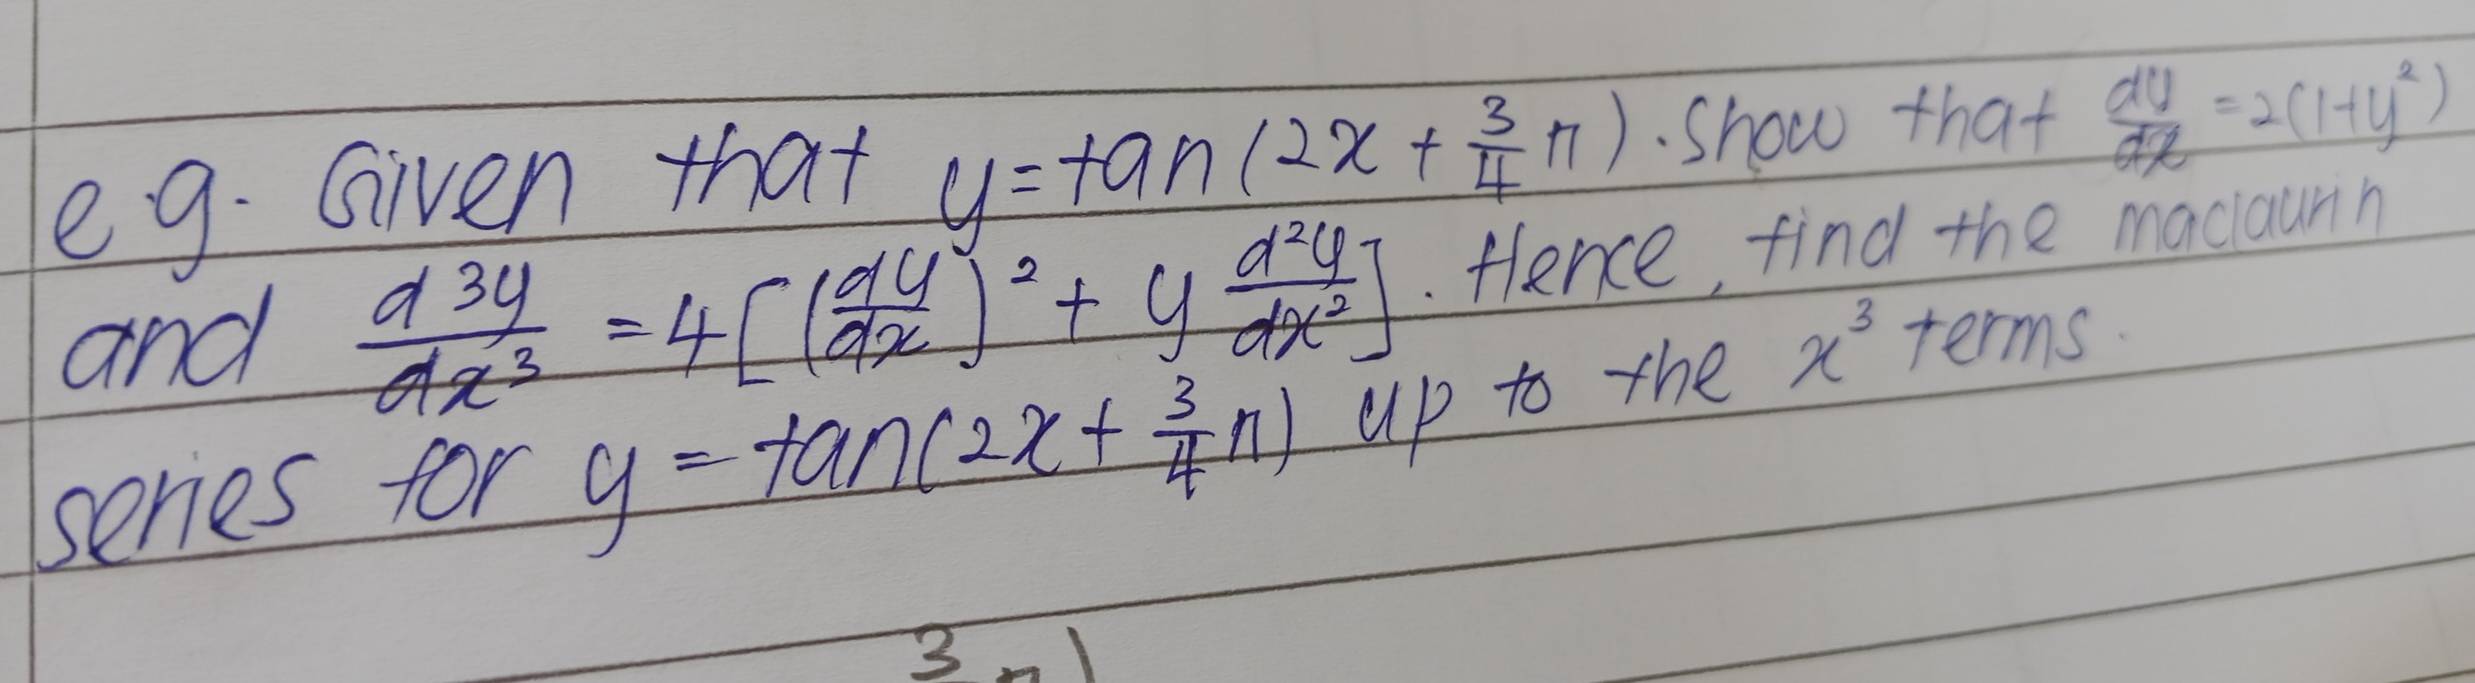 e.g. Given that y=tan(2x + 3/4 π). Show that dy/dx = 2(1+y²)
and d3y/dx³ = 4[(dy/dx)² + y d²y/dx²]. Hence, find the maclaurin
series for y = tan(2x + 3/4 π) up to the x³ terms.
3 π)